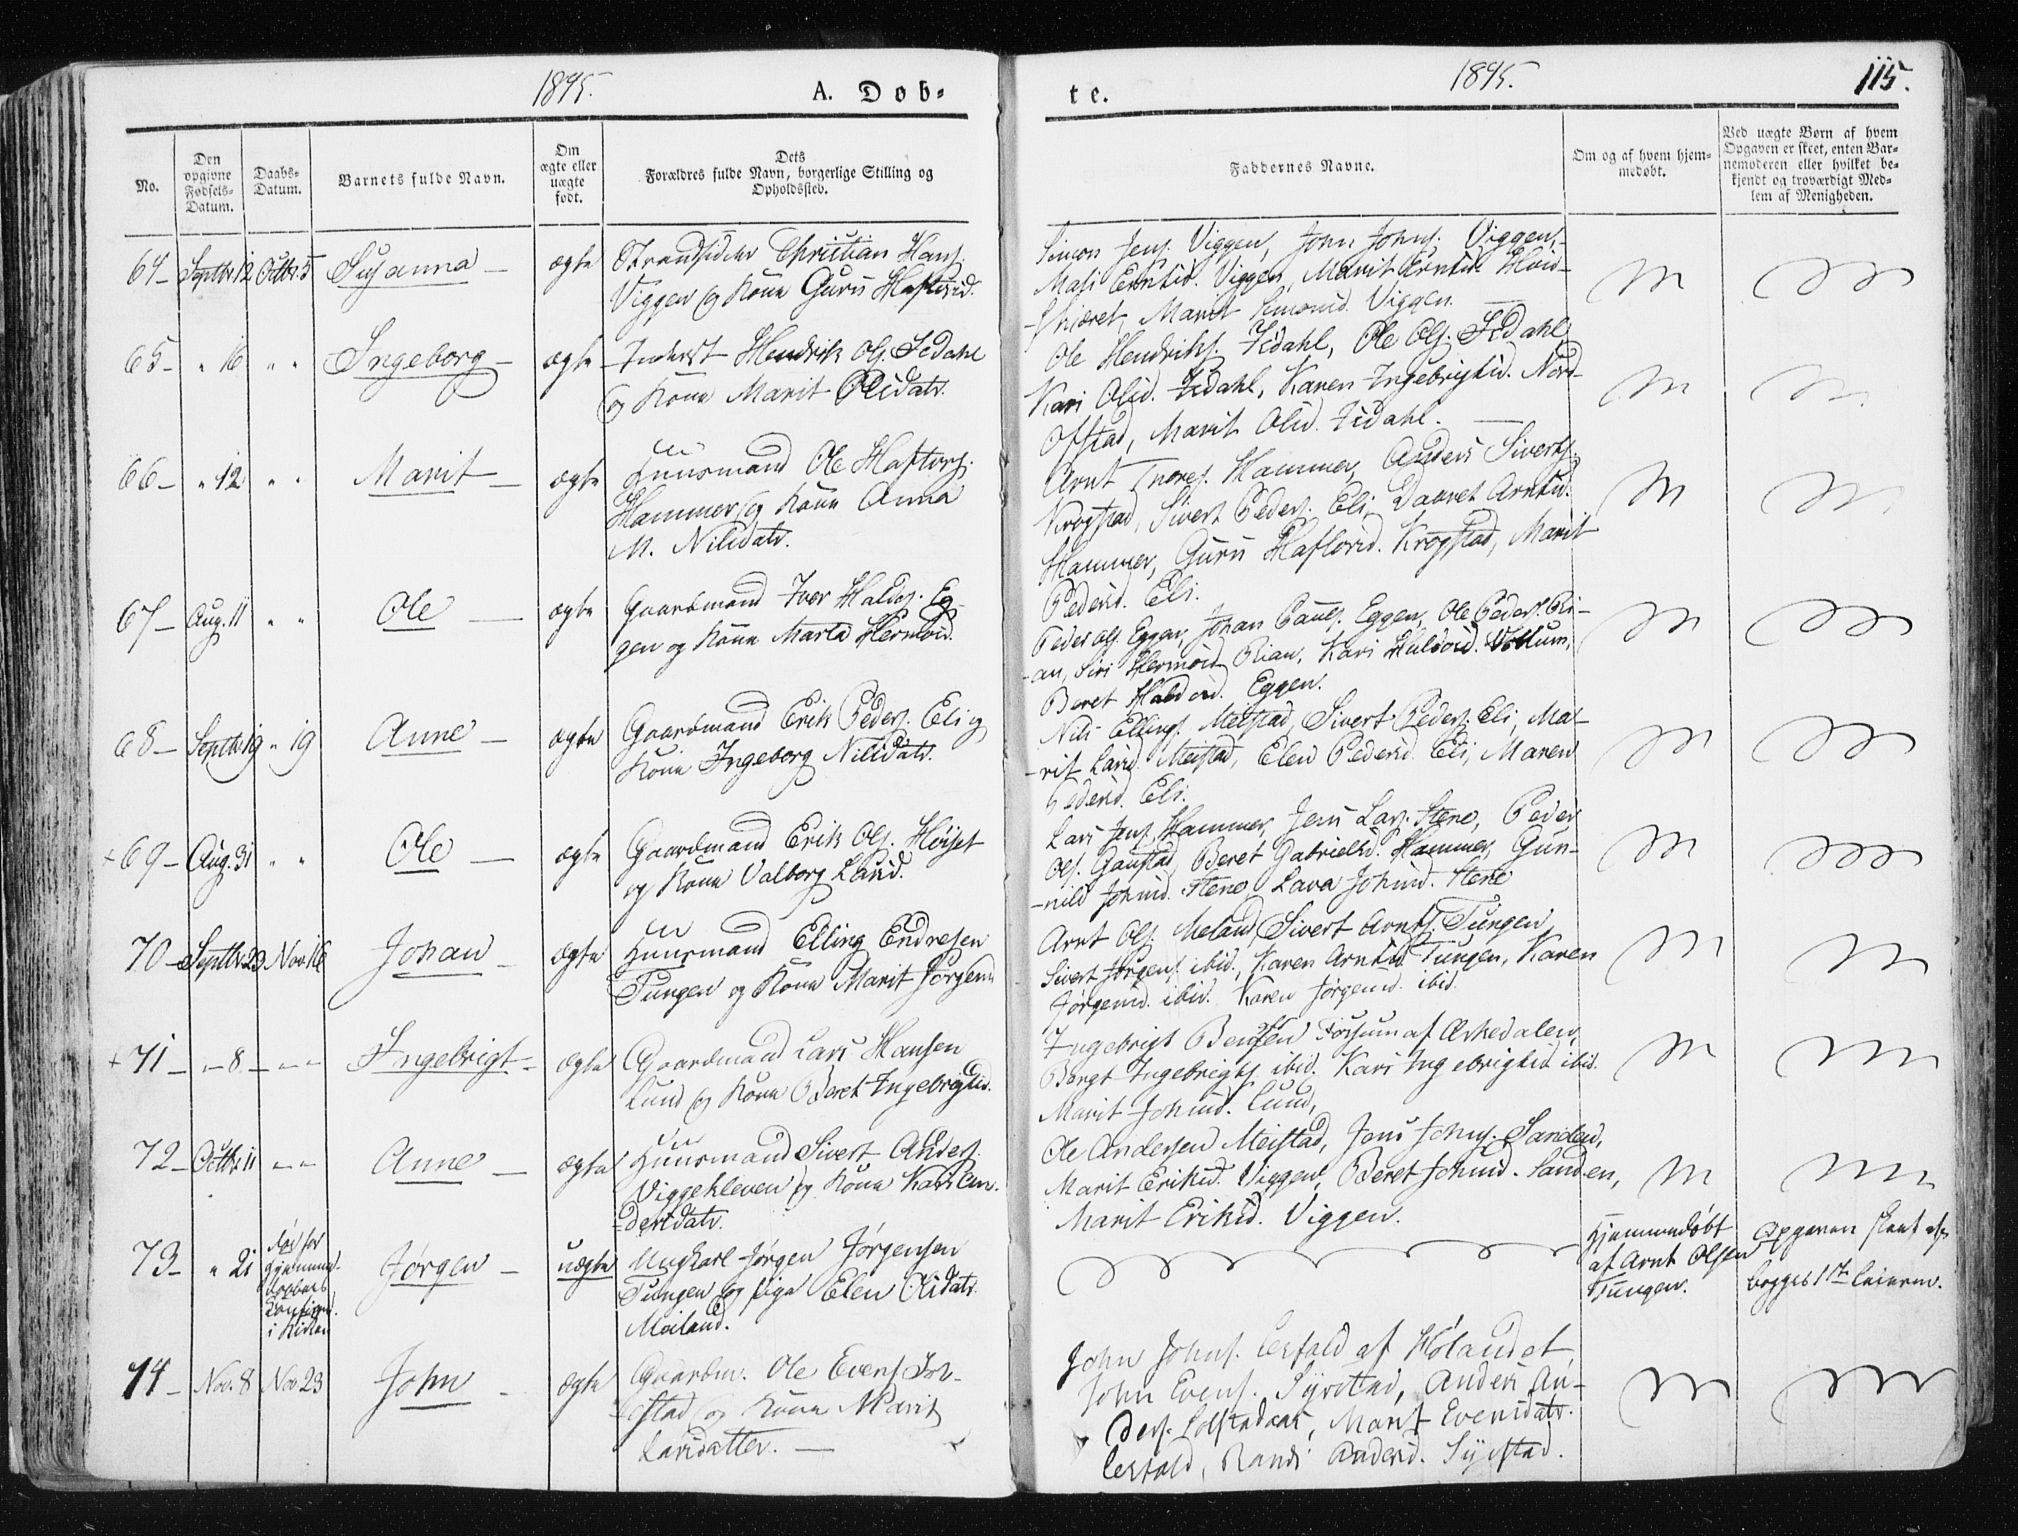 1845.
A. Døb-
te.
1845.
115.
No.
Den opgivne Fødsels-Datum.
Daabs-Datum.
Barnets fulde Navn.
Om ægte eller uægte født.
Dets Forældres fulde Navn, borgerlige Stilling og Opholdssted.
Faddernes Navne.
Om og af hvem hjem-
medøbt.
Ved uægte Børn af hvem
Opgaven er skeet, enten Bar-
nemoderen eller hvilket be-
kjendt og troværdigt Med-
lem af Menigheden.
64 - Septbr. 12 Octbr. 5 Susanna - ægte Strandsidder Christian Hans.
Viggen og Kone Guru Haflorsd.
Simon Jens. Viggen, John Johns. Viggen,
Mali Erntsd. Viggen, Marit Arntsd.
Marit Simonsd. Viggen.
65 - " 16 " " Ingeborg - ægte Inderst Hendrik Ols. Isdahl
og Kone Marit Olsdatr.
Ole Hendriks. Isdahl, Ole Ols. Isdahl,
Kari Olsd. Isdahl, Karen Ingebrigtsd. Nord-
Ofstad, Marit Olsd. Isdahl.
66 - " 12 " " Marit - ægte Huusmand Ole Haftors.
Hammer og Kone Anna
M. Nilsdatr.
Arnt Thores. Hammer, Anders Siverts.
Krogstad, Sivert Peders. Eli, Daaret Arntsd.
Hammer, Guru Haflorsd. Krogstad, Marit
Pedersd. Eli.
67 - Aug. 11 " " Ole - ægte Gaardmand Iver Haldos. Eg-
gen og Kone Marta Hermosd.
Peder Ols. Eggen, Johan Pauls. Eggen, Ole Peders. Ri-
an, Siri Hermosd. Rian, Kari Halvosd. Vollum,
Beret Haldosd. Eggen.
68 - Septbr. 19 " 19 Anne - ægte Gaardmand Erik Peders. Eli og
Kone Ingeborg Nilsdatr.
Nils Ellings. Meistad, Sivert Peders. Eli, Ma-
rit Larsd. Meistad, Elen Pedersd. Eli, Maren
Pedersd. Eli.
+ 69 - Aug. 31 " " Ole - ægte Gaardmand Erik Ols. Høiset
og Kone Valborg Larsd.
Lars Jens. Hammer, Jens Lars. Stene, Peder
Ols. Gaustad, Beret Gabrielsd. Hammer, Gun-
nild Johnsd. Stene, Lava Johnsd. Stene
70 - Septbr. 23 Nov. 16 Johan - ægte Huusmand Elling Endresen
Tungen og Kone Marit Jørgensd.
Arnt Ols. Meland, Sivert Arnts. Tungen,
Sivert Jørgens. ibid., Karen Arntsd. Tungen, Karen
Jørgensd. ibid. Karen Jørgensd. ibid.
+ 71 - " 8 - " " Ingebrigt - ægte Gaardmand Lars Hansen
Lund og Kone Beret Ingebrigtsd.
Ingebrigt Fossum af Orkedalen,
Bergt Ingebrigts. ibid. Kari Ingebrigtsd. ibid.
Marit Johnsd. Lund,
72 - Octbr. 11 " " Anne - ægte Huusmand Sivert Anders.
Viggekleven og Kone Kari An-
dersdatr.
Ole Andersen Meistad, Jens Johns. Sanden,
Marit Eriksd. Viggen, Beret Johnsd. Sanden,
Marit Eriksd. Viggen.
73 - " 21 Jørgen - uægte Ungkarl Jørgen Jørgensen
Tungen og Pige Elen Olsdatr.
Moiland.
døde før
i Kirken
Hjemmedøbt
af Arnt Olsen
Tungen.
Opgaven skeet af
begges 1ste Leierm.
74 - Nov. 8 Nov. 23 John - ægte Gaardm. Ole Evens.
stad og Kone Marit
Larsdatter. -
John Johns. af Hølandet,
John Evens. Syrstad, Anders An-
ders. Marit Evensdatr.
Randi Andersd. Syrstad.